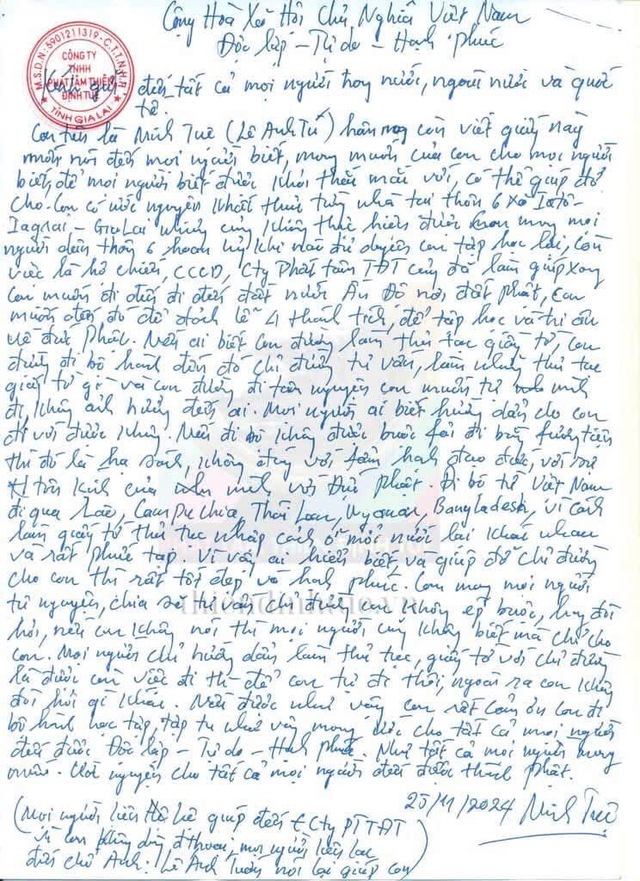 Cộng Hoà Xã Hội Chủ Nghĩa Việt Nam
Độc lập - Tự do - Hạnh Phúc
M.S.D.N: 5901211319 - C.T.T.N.H.H
CÔNG TY
TNHH
PHÁT TÂM THIÊN
ĐỊNH TUỆ
TỈNH GIA LAI
Kính gửi đến tất cả mọi người trong nước, ngoài nước và quốc
tế.
Con tên là Minh Tuệ (Lê Anh Tú) hôm nay con viết giấy này
muốn nói đến mọi người biết, mong muốn của con cho mọi người
biết, để mọi người biết được khỏi thắc mắc với, có thể giúp đỡ
cho. Con có ước nguyện khất thực từng nhà tại thôn 6 xã Iatô-
Iagrai - Gia Lai nhưng cũng không thực hiện được mong mọi
người dân thôn 6 hoan hỷ khi nào đủ duyên con tập học lại, còn
việc là hộ chiếu, CCCD, Cty Phát tâm TĐT cũng đã làm giúp xong
con muốn đi đến đi đến đất nước Ấn Độ nơi đất phật, con
muốn đến đó để đảnh lễ 4 thánh tích, để tập học và tri ân
về đức Phật. Nếu ai biết con đường làm thủ tục giấy tờ, con
đường đi bộ hành đến đó chỉ đường tư vấn, làm những thủ tục
giấy tờ gì và con đường đi toàn nguyên con muốn tự mình
đi, không ảnh hưởng đến ai. Mọi người ai biết hướng dẫn cho con
đi với được không. Nếu đi bộ không được buộc phải đi bằng phương tiện
thì đó là hạ sách, không đúng với tâm hạnh đạo đức, với sự
tôn kính của mình với Đức Phật. Đi bộ từ Việt Nam
đi qua Lào, Campuchia, Thái Lan, Myanma, Bangladesh, vì cách
làm giấy tờ thủ tục nhập cảnh ở mỗi nước lại khác nhau
và rất phức tạp. Vì vậy ai hiểu biết và giúp đỡ chỉ đường
cho con thì rất tốt đẹp và hạnh phúc. Con mong mọi người
tự nguyện, chia sẻ tư vấn chỉ đường con không ép buộc, hay đòi
hỏi, nếu con không nói thì mọi người cũng không biết mà chỉ cho
con. Mọi người chỉ hướng dẫn làm thủ tục, giấy tờ với chỉ đường
là được còn việc đi thì để con tự đi thôi, ngoài ra con không
đòi hỏi gì khác. Nếu được như vậy con rất cảm ơn con đi
bộ hành học tập, tập tu như vậy mong ước cho tất cả mọi người
đến được Độc lập - Tự do - Hạnh phúc. Như tất cả mọi người mong
muốn. Ước nguyện cho tất cả mọi người đều được thành phật.
25/11/2024 Minh Tuệ
(Mọi người liên hệ hỗ trợ giúp đến Cty PTTĐT
vì con không dùng đ thoại, mọi người liên lạc
đến chú Anh: Lê Anh Tuấn nói lại giúp con)
thiendinhtue.vn